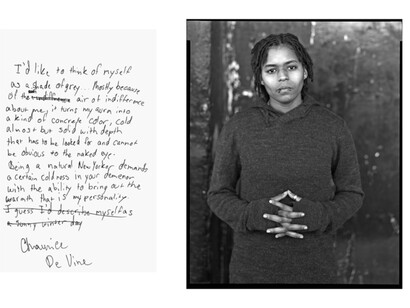 I'd like to think of myself
as a shade of grey. Mostly because
of the indifference air of indifference
about me, it turns my warm into
a kind of concrete color, cold
almost but solid with depth
that has to be looked for and cannot
be obvious to the naked eye.
Being a natural New Yorker demands
a certain coldness in your demeanor
with the ability to bring out the
warmth that is my personality.
I guess I'd describe myself as
a sunny winter day
Chaunice
De Vine